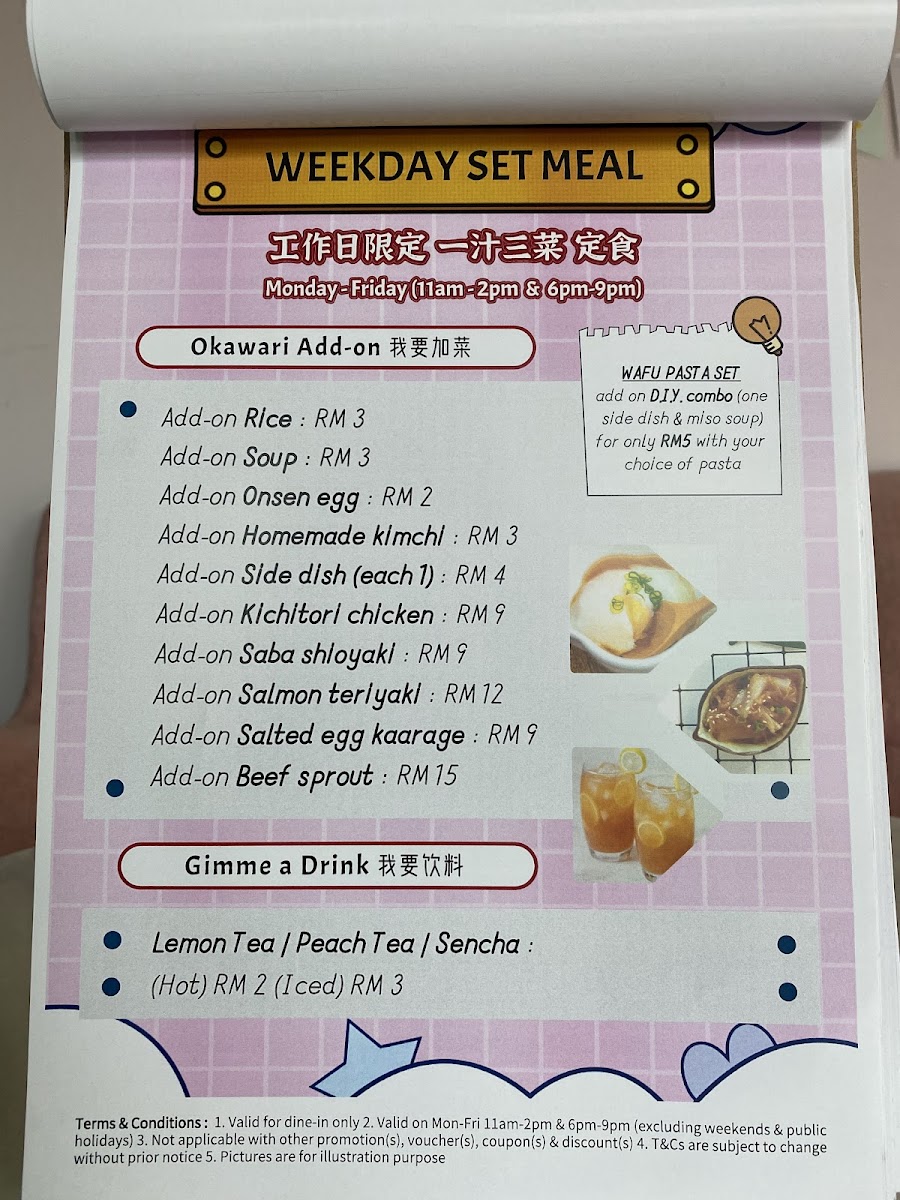 WEEKDAY SET MEAL
工作日限定 一汁三菜 定食
Monday-Friday (11am-2pm & 6pm-9pm)
Okawari Add-on 我要加菜
WAFU PASTA SET
add on D.I.Y. combo (one
side dish & miso soup)
for only RM5 with your
choice of pasta
Add-on Rice : RM 3
Add-on Soup : RM 3
Add-on Onsen egg : RM 2
Add-on Homemade kimchi : RM 3
Add-on Side dish (each 1) : RM 4
Add-on Kichitori chicken : RM 9
Add-on Saba shioyaki : RM 9
Add-on Salmon teriyaki : RM 12
Add-on Salted egg kaarage : RM 9
Add-on Beef sprout : RM 15
Gimme a Drink 我要饮料
Lemon Tea / Peach Tea / Sencha :
(Hot) RM 2 (Iced) RM 3
Terms & Conditions : 1. Valid for dine-in only 2. Valid on Mon-Fri 11am-2pm & 6pm-9pm (excluding weekends & public
holidays) 3. Not applicable with other promotion(s), voucher(s), coupon(s) & discount(s) 4. T&Cs are subject to change
without prior notice 5. Pictures are for illustration purpose